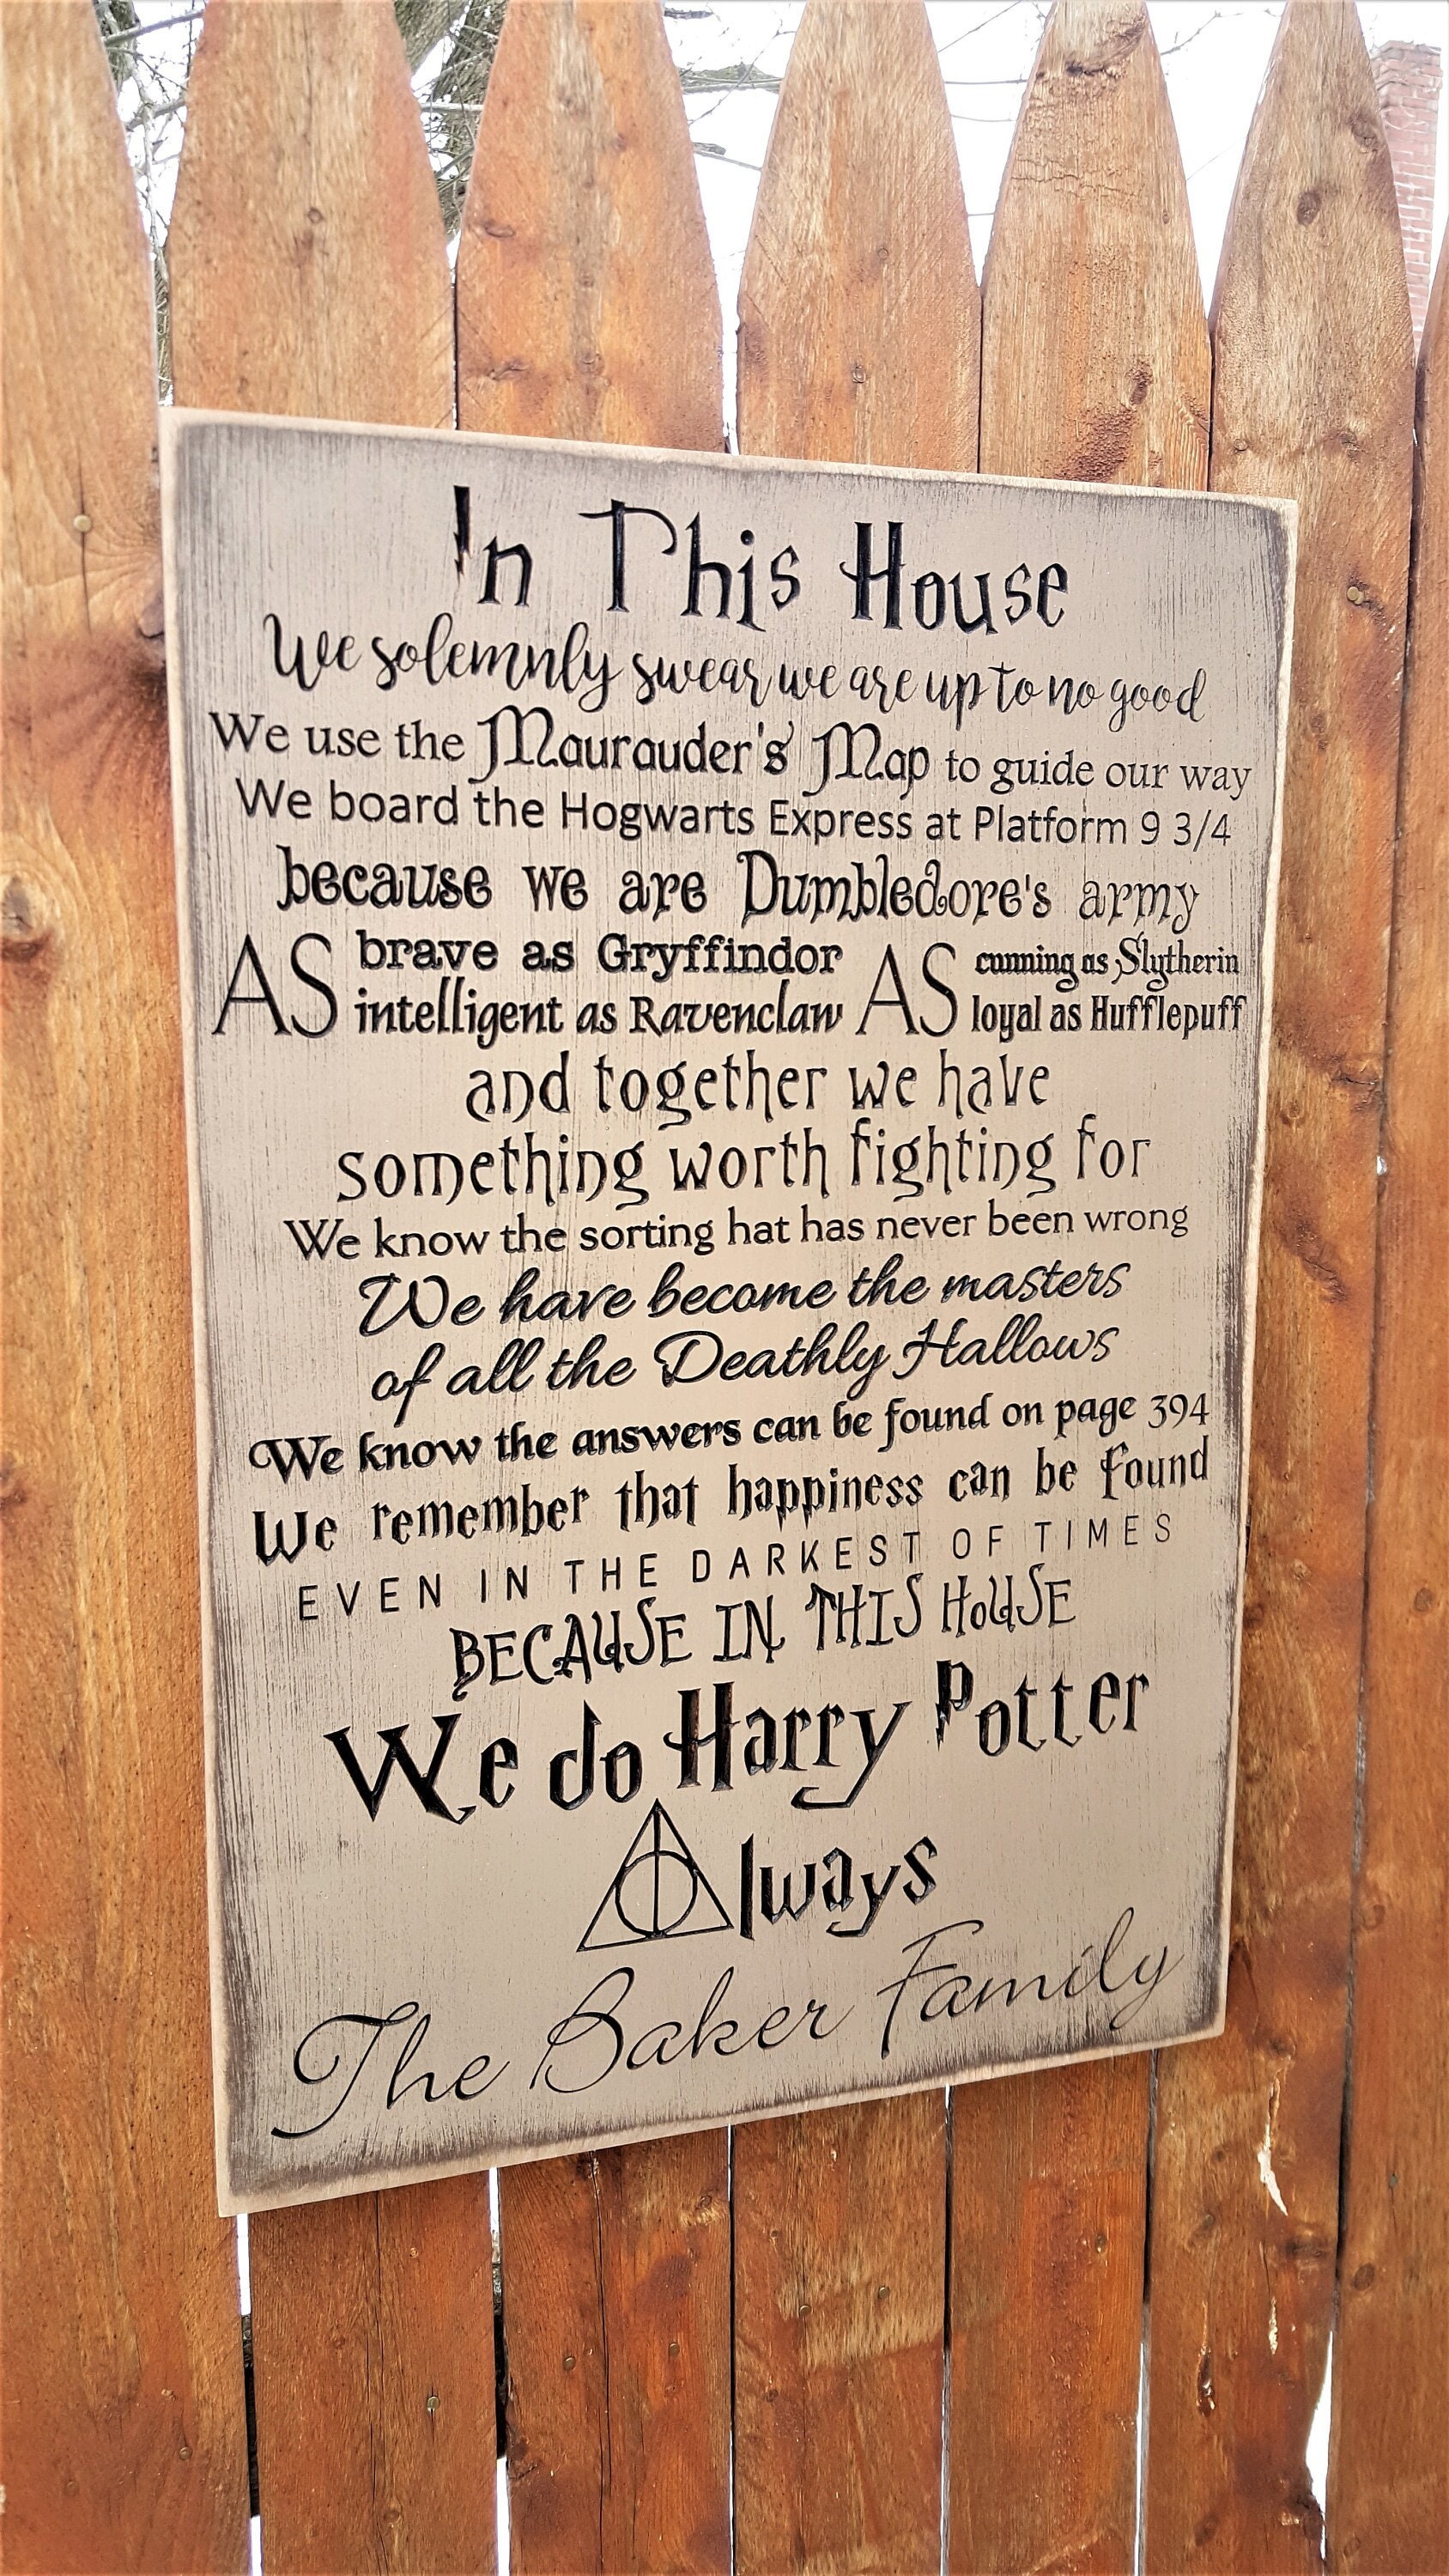 In This House
We solemnly swear we are up to no good
We use the Maurauder's Map to guide our way
We board the Hogwarts Express at Platform 9 3/4
because we are Dumbledore's army
AS brave as Gryffindor AS cunning as Slytherin
intelligent as Ravenclaw loyal as Hufflepuff
and together we have
something worth fighting for
We know the sorting hat has never been wrong
We have become the masters
of all the Deathly Hallows
We know the answers can be found on page 394
We remember that happiness can be found
EVEN IN THE DARKEST OF TIMES
BECAUSE IN THIS HOUSE
We do Harry Potter
Always
The Baker Family